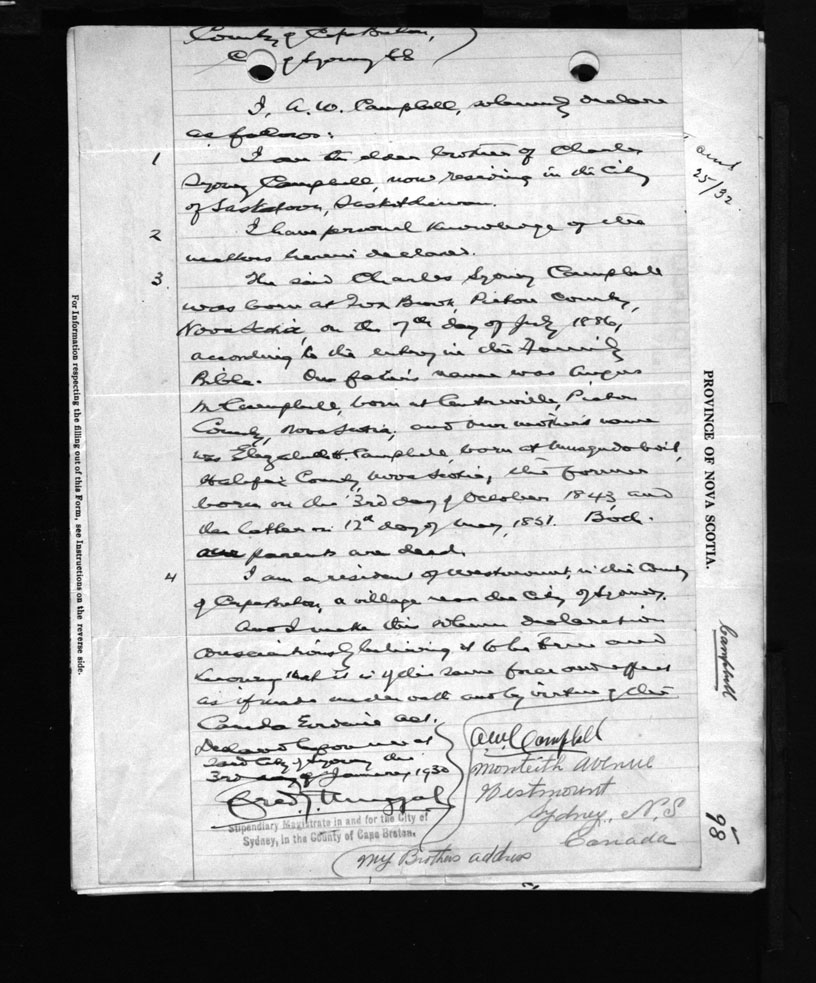 County of Cape Breton,
City of Sydney SS
I, A. W. Campbell, solemnly declare
as follows:
1 I am the elder brother of Charles
Sydney Campbell, now residing in the City
of Saskatoon, Saskatchewan.
2 I have personal knowledge of the
matters herein declared.
3 The said Charles Sydney Campbell
was born at Brook, Pictou County,
Nova Scotia, on the 7th day of July 1886,
according to the entry in the Family
Bible. Our father's name was Angus
M Campbell, born at Centreville, Pictou
County, Nova Scotia, and our mother's name
was Elizabeth Campbell, born at Musquodoboit,
Halifax County, Nova Scotia, the former
born on the 3rd day of October 1843 and
the latter on 12th day of May, 1851. Both
our parents are dead.
4 I am a resident of Westmount, in the County
of Cape Breton, a village near the City of Sydney.
And I make this solemn declaration
conscientiously believing it to be true and
knowing that it is of the same force and effect
as if made under oath and by virtue of the
Canada Evidence Act.
Declared before me at
said City of Sydney this
3rd day of January 1930
Fred.
Stipendiary Magistrate in and for the City of
Sydney, in the County of Cape Breton.
A W Campbell
Monteith Avenue
Westmount
Sydney, N. S
Canada
My Brothers address
25/32
For Information respecting the filling out of this Form, see Instructions on the reverse side.
PROVINCE OF NOVA SCOTIA.
Campbell
98